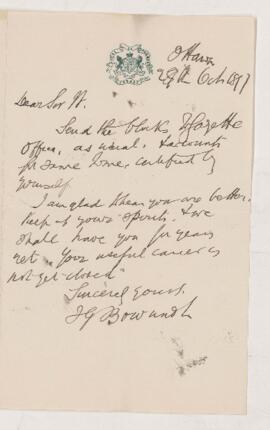 Ottawa
29th Oct 1897
Dear Sir W.
Send the blocks, to Gazette
Office, as usual, & accounts
for same time, certified by
yourself.
I am glad to hear you are better.
Keep up your spirits. & we
shall have you for years
yet. Your useful career is
not yet closed"
Sincerely yours.
J G Bourinot